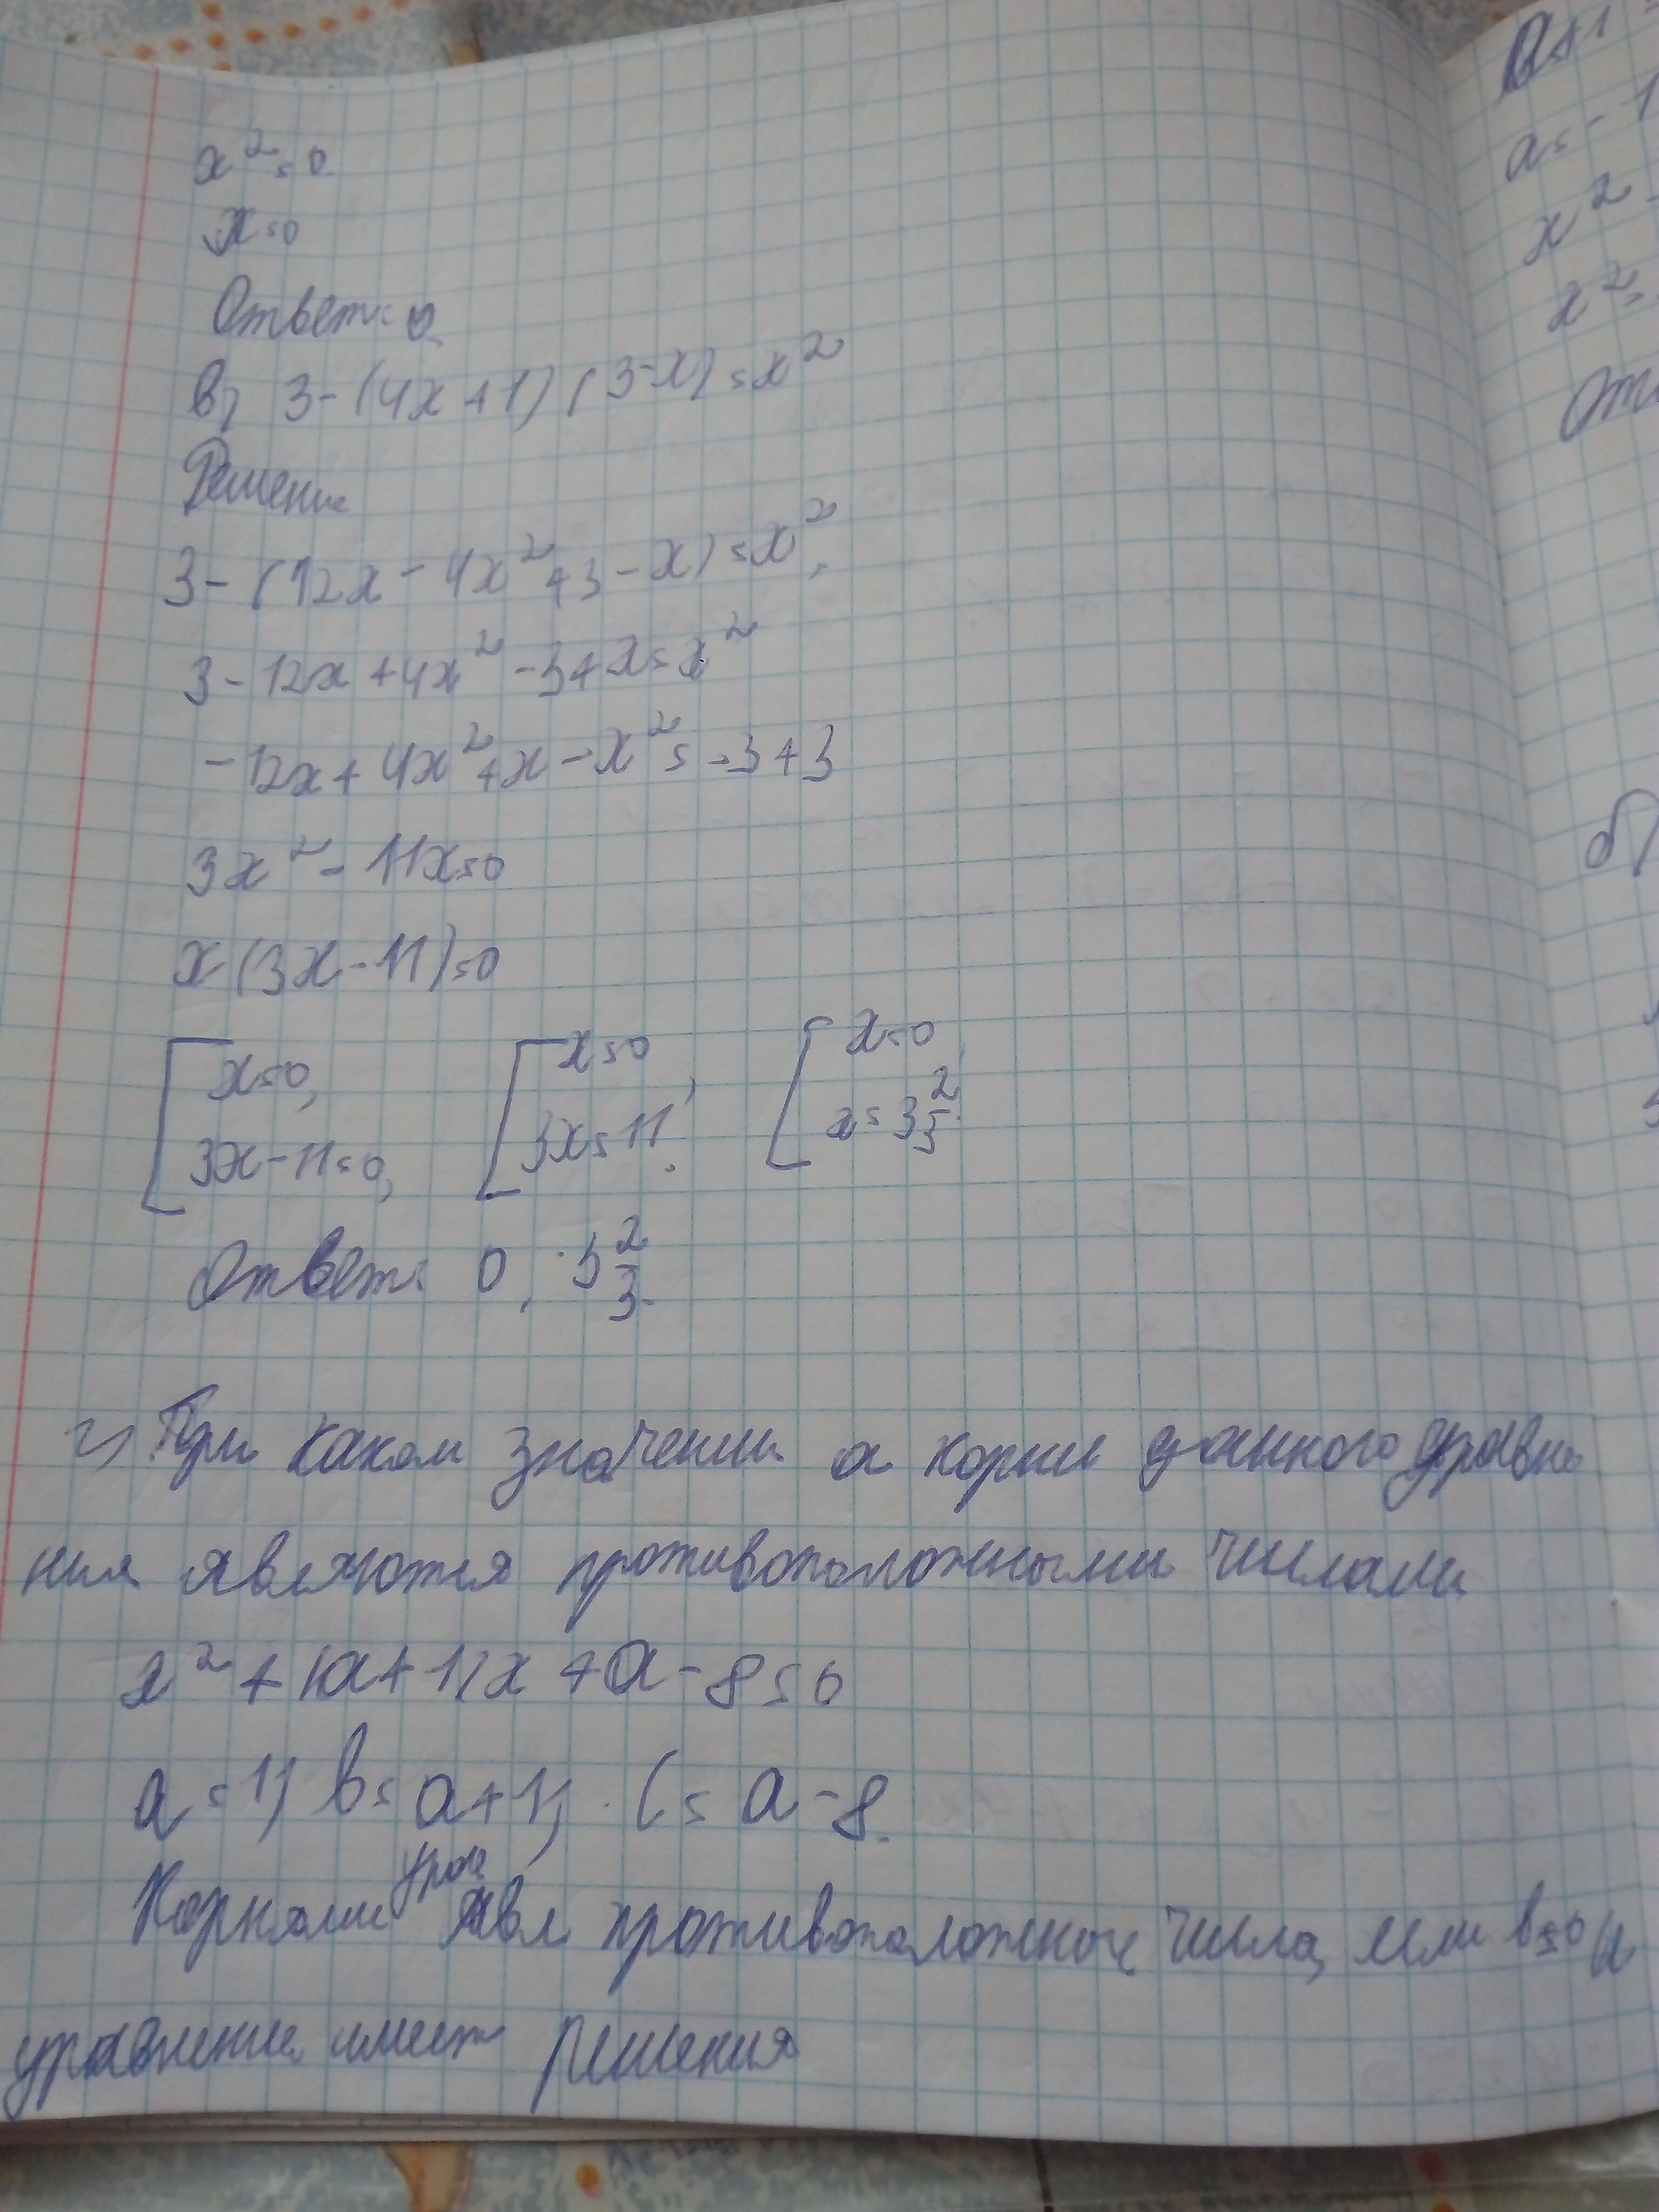 x² = 0.
x = 0
Ответ: 0
в) 3 - (4x + 1) (3 - x) = x²
Решение
3 - (12x - 4x² + 3 - x) = x²,
3 - 12x + 4x² - 3 + x = x²
-12x + 4x² + x - x² = -3 + 3
3x² - 11x = 0
x (3x - 11) = 0
[ x = 0, [ x = 0, [ x = 0
3x - 11 = 0, 3x = 11. x = 3 2/3.
Ответ: 0, 3 2/3.
г) При каком значении а корни данного уравне
ния являются противоположными числами
x² + (a + 1)x + a - 8 = 0
a = 1, b = a + 1, c = a - 8.
Корнями урав явл противоположное числа, если b = 0 и
уравнение имеет решения
a + 1
a = - 1
x²
x² =
От
б)